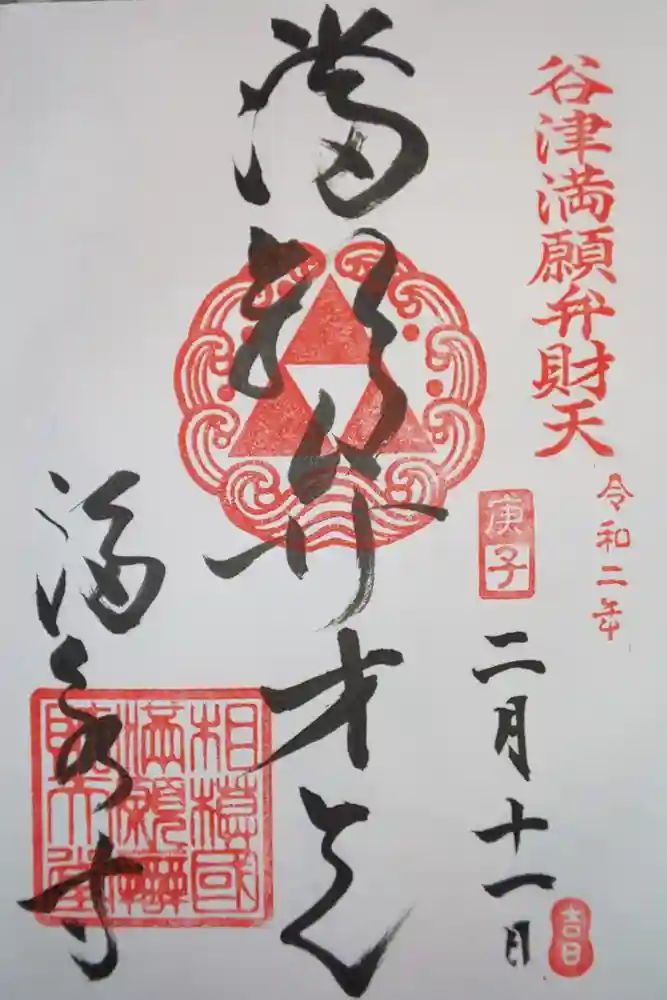 谷津満願弁財天
令和二年
庚子
二月十一日
吉日
満願弁才天
相模國
満願辨
財天堂